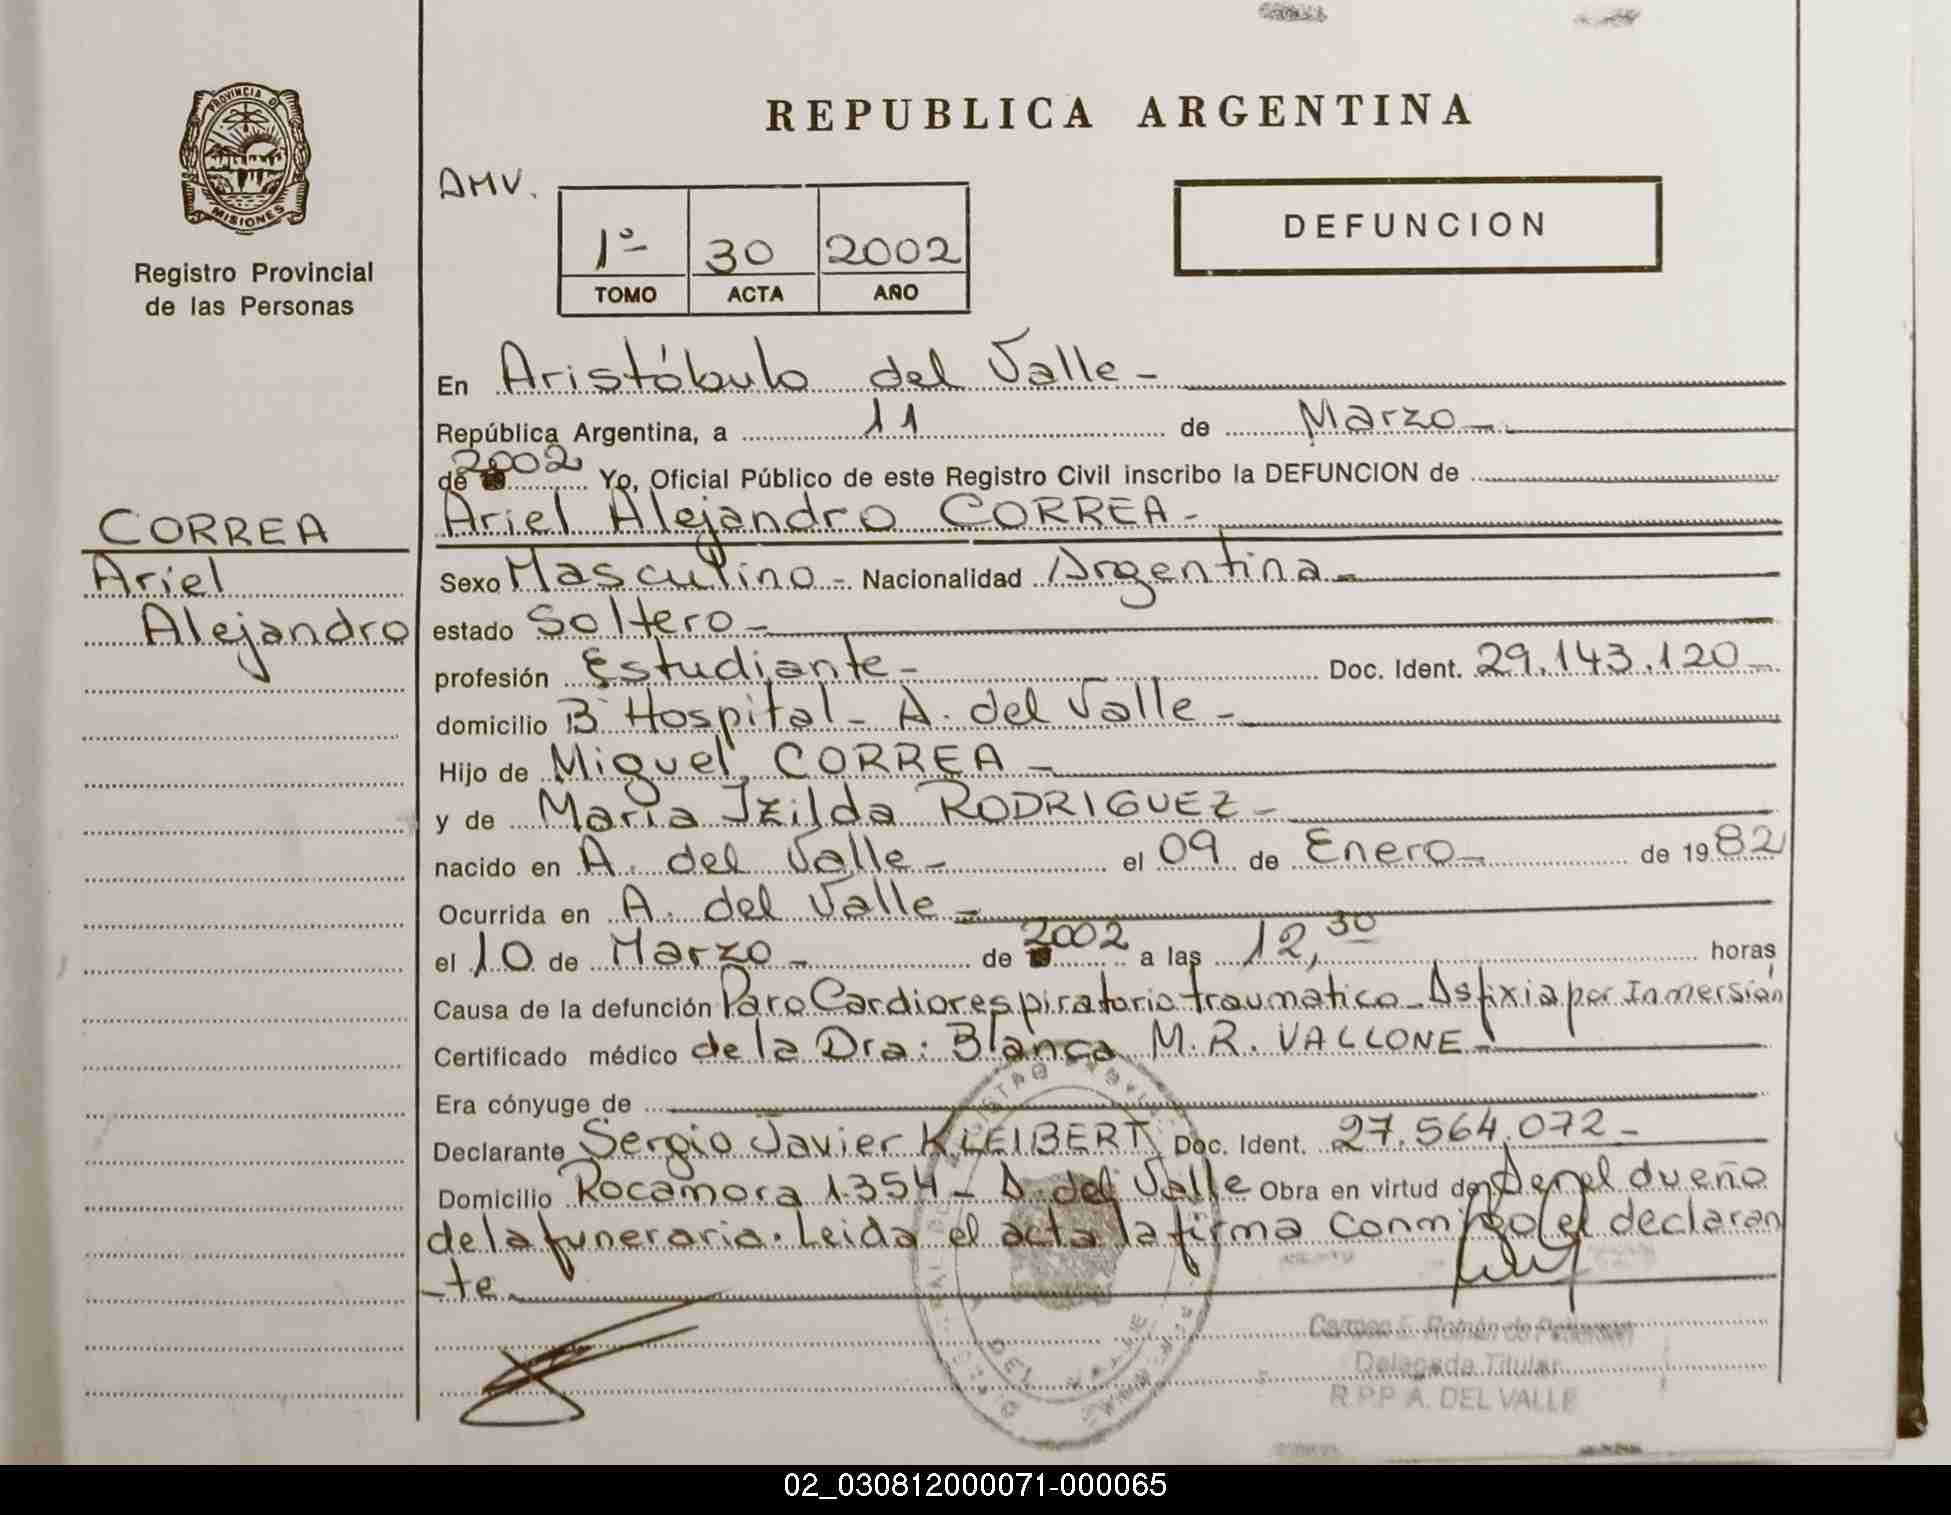 PROVINCIA D
MISIONES
Registro Provincial
de las Personas
REPUBLICA ARGENTINA
AMV.
1º 30 2002
TOMO ACTA AÑO
DEFUNCION
En Aristóbulo del Valle -
República Argentina, a 11 de Marzo -
de 2002 Yo, Oficial Público de este Registro Civil inscribo la DEFUNCION de
Ariel Alejandro CORREA -
CORREA
Ariel
Alejandro
Sexo Masculino - Nacionalidad Argentina -
estado Soltero -
profesión Estudiante - Doc. Ident. 29.143.120 -
domicilio Bº Hospital - A. del Valle -
Hijo de Miguel CORREA -
y de María Izilda RODRIGUEZ -
nacido en A. del Valle - el 09 de Enero - de 1982
Ocurrida en A. del Valle -
el 10 de Marzo - de 2002 a las 12,30 horas
Causa de la defunción Paro Cardiorespiratorio traumatico - Asfixia por Inmersión
Certificado médico de la Dra: Blanca M.R. VALLONE -
Era cónyuge de
Declarante Sergio Javier KLEIBERT Doc. Ident. 27.564.072 -
Domicilio Rocamora 1354 - A. del Valle Obra en virtud de ser el dueño
de la funeraria. Leida el acta la firma conmigo el declaran
-te
DEL VALLE
Carmen E. Román de
Delegada Titular
R.P.P A. DEL VALLE
02_030812000071-000065